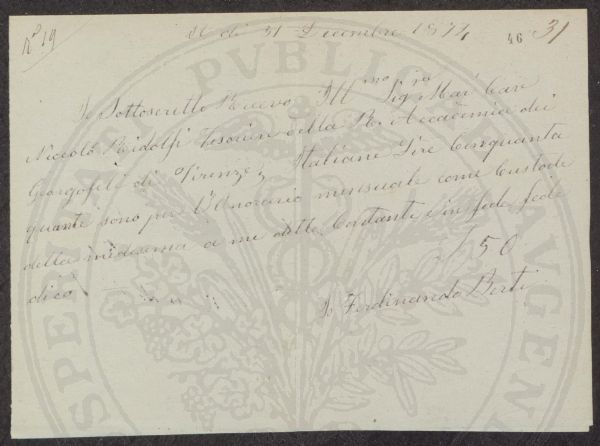 N° 19
A dì 31 Decembre 1874
46 31
Io Sottoscritto Ricevo Ill.mo Sig.re Mar. Cav.
Niccolò Ridolfi Tesoriere della R. Accademia dei
Georgofili di Firenze, Italiane Lire Cinquanta
quante sono per l'Onorario mensuale come Custode
della medesima a me dette Contante e in fede
dico
£ 50
Io Ferdinando Berti
PVBLIC
AVGEND
SPEM A